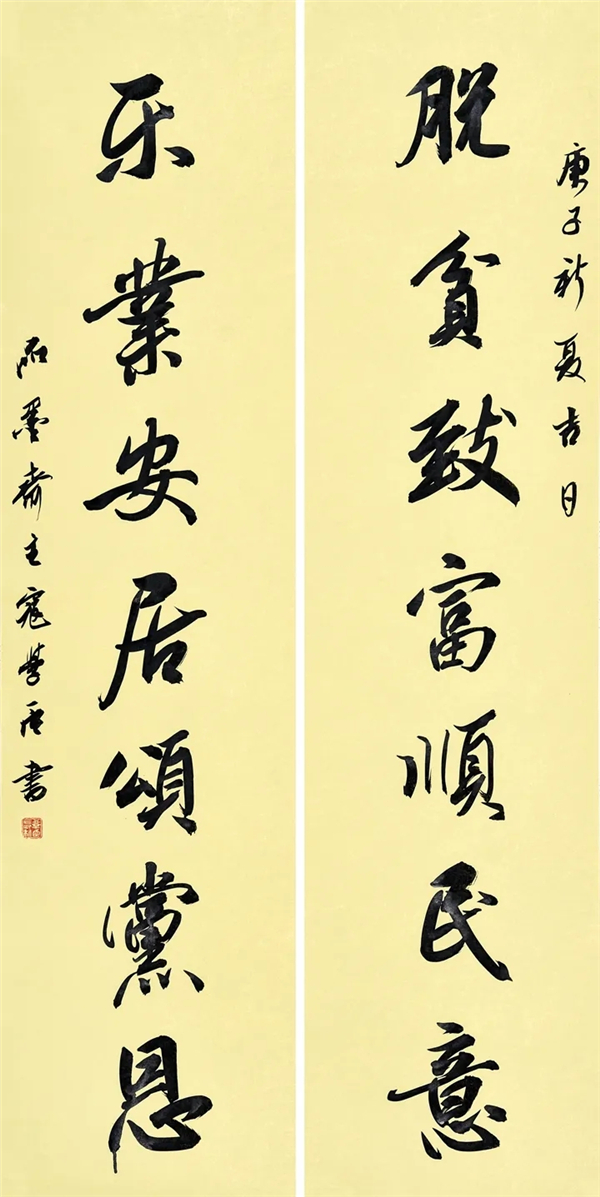 庚子新夏吉日
脱貧致富順民意
乐業安居頌黨恩
石墨齋主寇學書